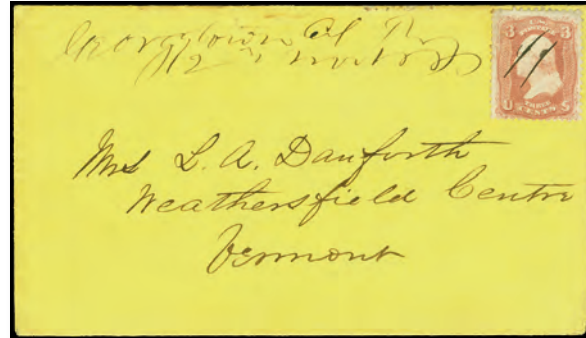 Georgetown Col T
12
3 3
U THREE CENTS S
Mrs L. A. Danforth
Weathersfield Centre
Vermont